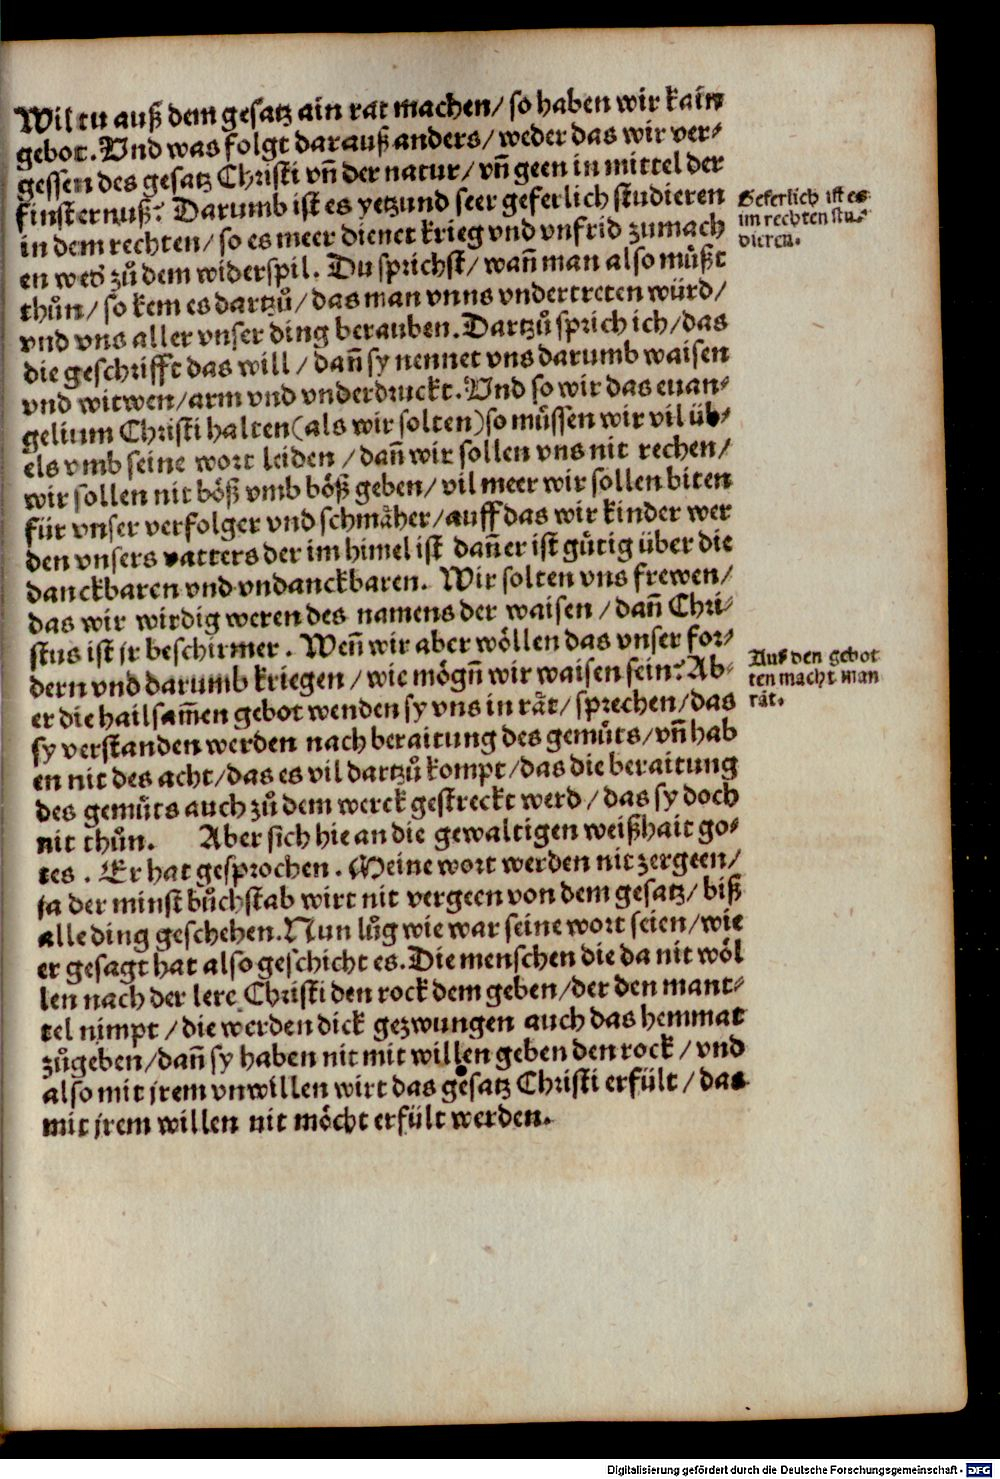 Wil tu auß dem gesatz ain rat machen/ so haben wir kain
gebot. Vnd was folgt darauß anders/ weder das wir ver⸗
gessen des gesatz Christi vn̄ der natur/ vn̄ geen in mittel der
finsternuß? Darumb ist es yetzund seer geferlich studieren
in dem rechten/ so es meer dienet krieg vnd vnfrid zumach
en wed̕ zů dem widerspil. Du sprichst/ wan̄ man also můßt
thůn/ so kem es dartzů/ das man vnns vndertreten würd/
vnd vns aller vnser ding berauben. Dartzů sprich ich/ das
die geschrifft das will/ dan̄ sy nennet vns darumb waisen
vnd witwen/ arm vnd vnderdruckt. Vnd so wir das euan⸗
gelium Christi halten (als wir solten) so müssen wir vil üb⸗
els vmb seine wort leiden/ dan̄ wir sollen vns nit rechen/
wir sollen nit böß vmb böß geben/ vil meer wir sollen biten
für vnser verfolger vnd schmäher/ auff das wir kinder wer
den vnsers vatters der im himel ist dan̄ er ist gütig über die
danckbaren vnd vndanckbaren. Wir solten vns frewen/
das wir wirdig weren des namens der waisen/ dan̄ Chri⸗
stus ist jr beschirmer. Wen̄ wir aber wöllen das vnser for⸗
dern vnd darumb kriegen/ wie mögn̄ wir waisen sein? Ab⸗
er die hailsam̄en gebot wenden sy vns in rät/ sprechen/ das
sy verstanden werden nach beraitung des gemüts/ vn̄ hab
en nit des acht/ das es vil dartzů kompt/ das die beraitung
des gemüts auch zů dem werck gestreckt werd/ das sy doch
nit thůn. Aber sich hie an die gewaltigen weißhait go⸗
tes. Er hat gesprochen. Meine wort werden nit zergeen/
ja der minst bůchstab wirt nit vergeen von dem gesatz/ biß
alle ding geschehen. Nun lůg wie war seine wort seien/ wie
er gesagt hat also geschicht es. Die menschen die da nit wöl
len nach der lere Christi den rock dem geben/ der den mant⸗
tel nimpt/ die werden dick gezwungen auch das hemmat
zůgeben/ dan̄ sy haben nit mit willen geben den rock/ vnd
also mit jrem vnwillen wirt das gesatz Christi erfült/ das
mit jrem willen nit möcht erfült werden.
Geferlich ist es
im rechten stu⸗
dieren.
Aus den gebot
ten macht man
rät.
Digitalisierung gefördert durch die Deutsche Forschungsgemeinschaft - DFG